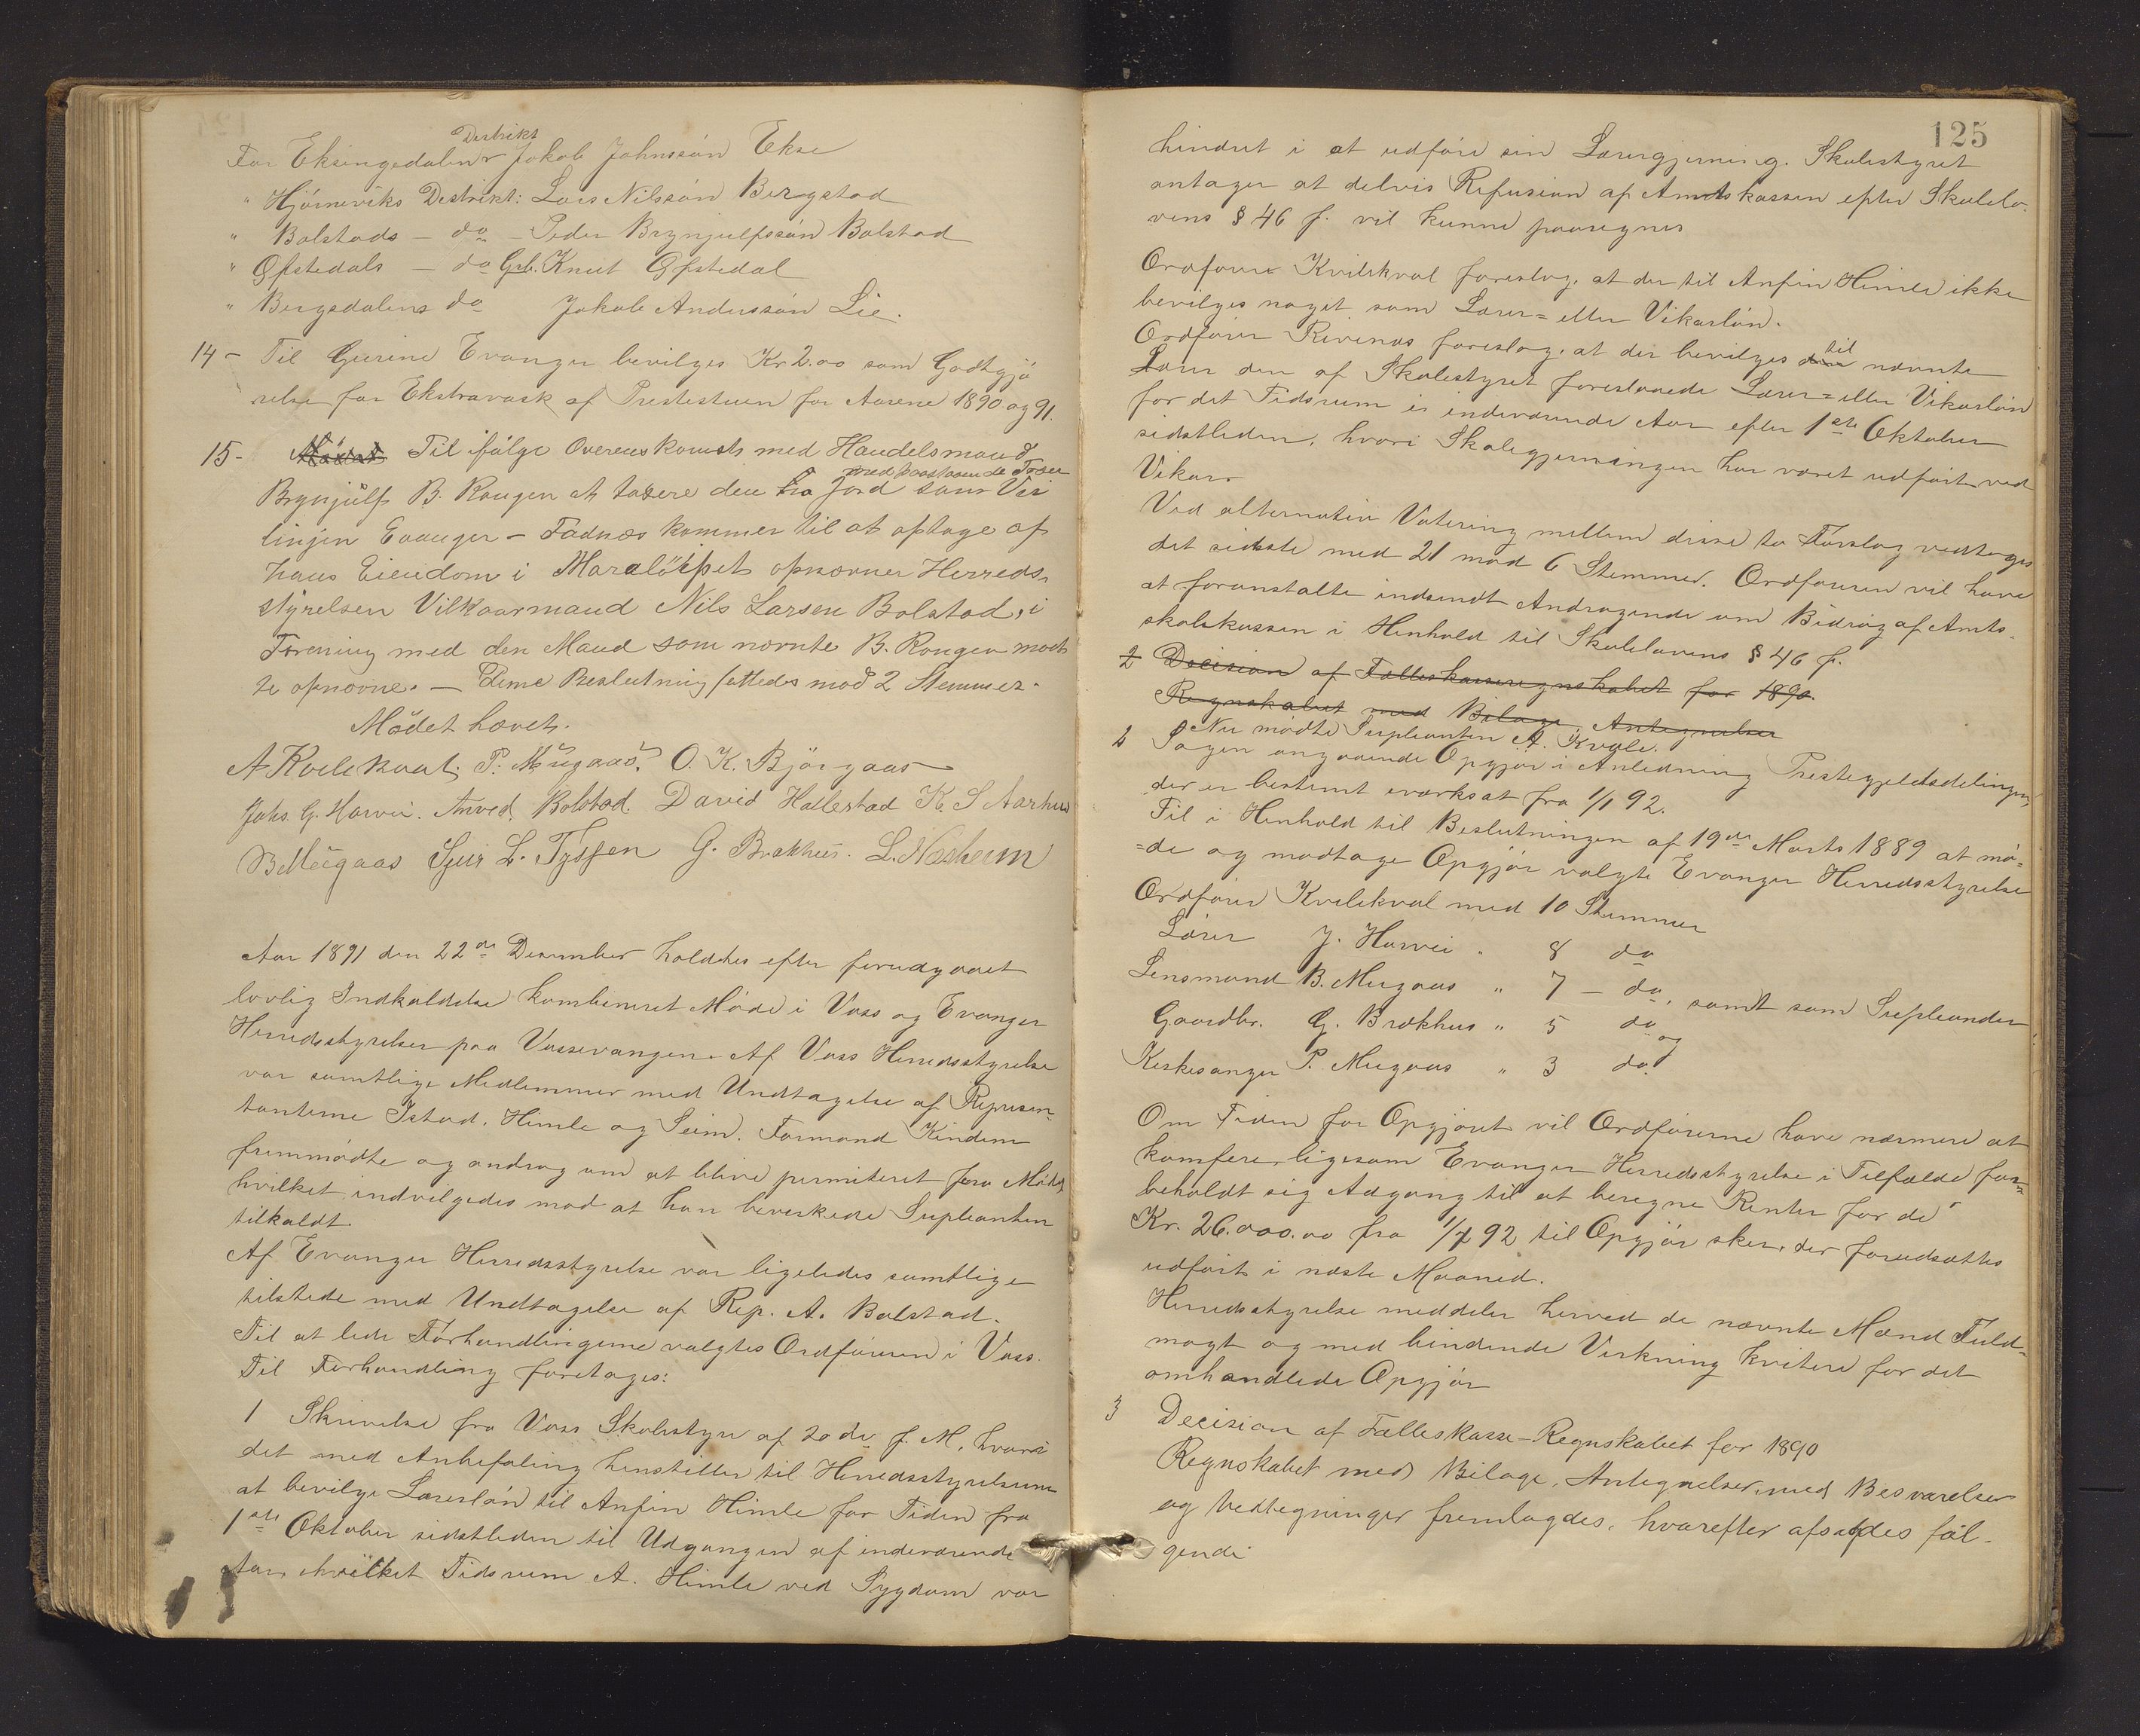 Distrikt
For Eksingedalens Jakob Johnssön Ekse
" Hjörneviks Distrikt: Lars Nilssön Bergstad
" Bolstads — do — Peder Brynjulfssön Bolstad
" Öfstedals — do Grb. Knut Öfstedal
" Bergsdalens do Jakob Anderssön Lie.
14 - Til Gurine Evanger bevilges Kr 2.00 som Godtgjö
relse for Ekstravask af Prestestuen for Aarene 1890 og 91.
15 - Mödet Til ifölge Overenskomst med Handelsmand
med paastaaende Træer
Brynjulf B. Rongen at taxere den fra Jord som Vei
linjen Evanger - Fadnæs kommer til at optage af
hans Eiendom i Maralöipet opnævner Herreds-
styrelsen Vilkaarmand Nils Larsen Bolstad, i
Forening med den Mand som nævnte B. Rongen maat
te opnævne. — Denne Beslutning fattedes mod 2 Stemmer.
Mödet hævet.
A Kvilekval. P. Mugaas. O. K. Björgaas
Johs. G. Horvei. Anved Bolstad. David Hallestad K. S Aarhus
B Mugaas Sjur L. Tyssen G. Brækhus. L. Næsheim
Aar 1891 den 22de December holdtes efter forudgaaet
lovlig Indkaldelse kombineret Möde i Voss og Evanger
Herredsstyrelser paa Vossevangen. Af Voss Herredsstyrelse
var samtlige Medlemmer med Undtagelse af Represen-
tanterne Istad, Himle og Seim. Formand Kindem
fremmödte og androg om at blive permiteret fra Mödet
hvilket indvilgedes mod at han bevirkede Supleanten
tilkaldt.
Af Evanger Herredsstyrelse var ligeledes samtlige
tilstede med Undtagelse af Rep. A. Bolstad.
Til at lede Forhandlingerne valgtes Ordföreren i Voss.
Til Forhandling foretoges:
1 Skrivelse fra Voss Skolestyre af 20de f. M. hvori
det med Anbefaling henstiller til Herredsstyrelserne
at bevilge Lærerlön til Anfin Himle for Tiden fra
1ste Oktober sidstleden til Udgangen af indeværende
Aar, i hvilket Tidsrum A. Himle ved Sygdom var
125
hindret i at udföre sin Lærergjerning. Skolestyret
antager at delvis Refusion af Amtskassen efter Skolelo-
vens § 46 f. vil kunne paaregnes
Ordförer Kvilekval foreslog, at der til Anfin Himle ikke
bevilges noget som Lærer= eller Vikarlön.
til
Ordförer Revenæs foreslog, at der bevilges den nævnte
Lærer den af Skolestyret foreslaaede Lærer= eller Vikarlön
for det Tidsrum i indeværende Aar efter 1ste Oktober
sidstleden, hvori Skolegjerningen har været udfört ved
Vikar.
Ved alternativ Votering mellem disse to Forslag vedtoges
det sidste med 21 mod 6 Stemmer. Ordföreren vil have
at foranstalte indsendt Andragende om Bidrag af Amts-
skolekassen i Henhold til Skolelovens § 46 f.
2 Decision af Fælleskasseregnskabet for 1890.
Regnskabet med Bilage, Antegnelser
Nu mödte Supleanten A. Kvale.
2 Sagen angaaende Opgjör i Anledning Prestegjeldsdelingen,
der er bestemt iværksat fra 1/1 92.
Til i Henhold til Beslutningen af 19de Marts 1889 at mö-
=de og modtage Opgjör valgte Evanger Herredsstyrelse
Ordförer Kvilekval med 10 Stemmer
Lærer J. Horvei " 8 do
Lensmand B. Mugaas " 7 — do, samt som Supleanter
Gaardbr. G. Brækhus " 5 do
og
Kirkesanger P. Mugaas " 3 do.
Om Tiden for Opgjöret vil Ordförerne have nærmere at
konferere, ligesom Evanger Herredsstyrelse i Tilfælde for-
beholdt sig Adgang til at beregne Renter for de
Kr. 26.000.00 fra 1/1 92 til Opgjör sker, der forudsættes
udfört i næste Maaned.
Herredsstyrelse meddeler herved de nævnte Mænd Fuld-
magt og med bindende Virkning kvitere for det
omhandlede Opgjör
3 Decision af Fælleskasse-Regnskabet for 1890
Regnskabet med Bilage, Antegnelser, med Besvarelser
og Vedtegninger fremlagdes, hvorefter afsagdes föl-
gende